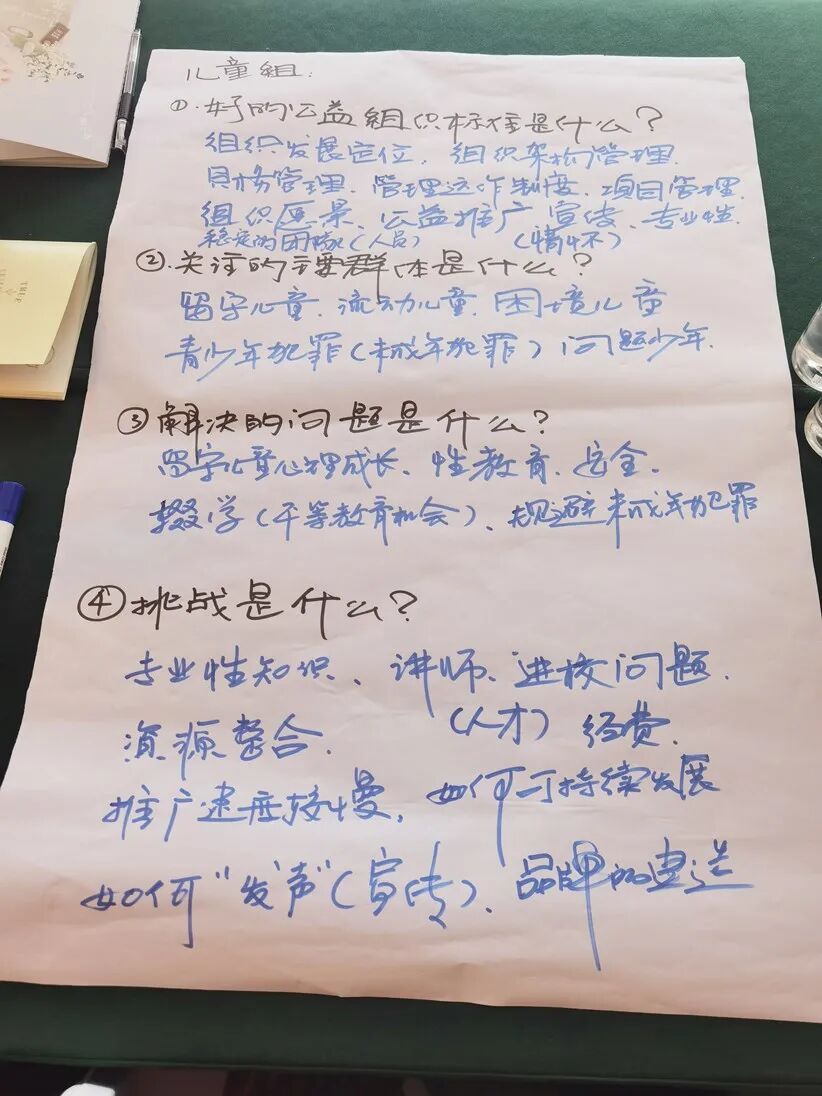 儿童組:
①.好的公益组织标准是什么?
组织发展定位、组织架构管理.
财务管理、管理运作制度、项目管理.
组织愿景、公益推广宣传、专业性.
稳定的团队(人员) (情怀)
②.关注的主要群体是什么?
留守儿童、流动儿童、困境儿童
青少年犯罪(未成年犯罪)问题少年.
③解决的问题是什么?
留守儿童心理成长、性教育、安全.
辍学(平等教育机会)、规避未成年犯罪
④挑战是什么?
专业性知识、讲师、进校问题.
资源整合. (人才) 经费.
推广速度较慢, 如何可持续发展
如何“发声”(宣传)、品牌的建造